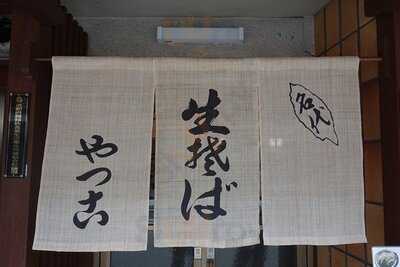 名代
生そば
やっこ